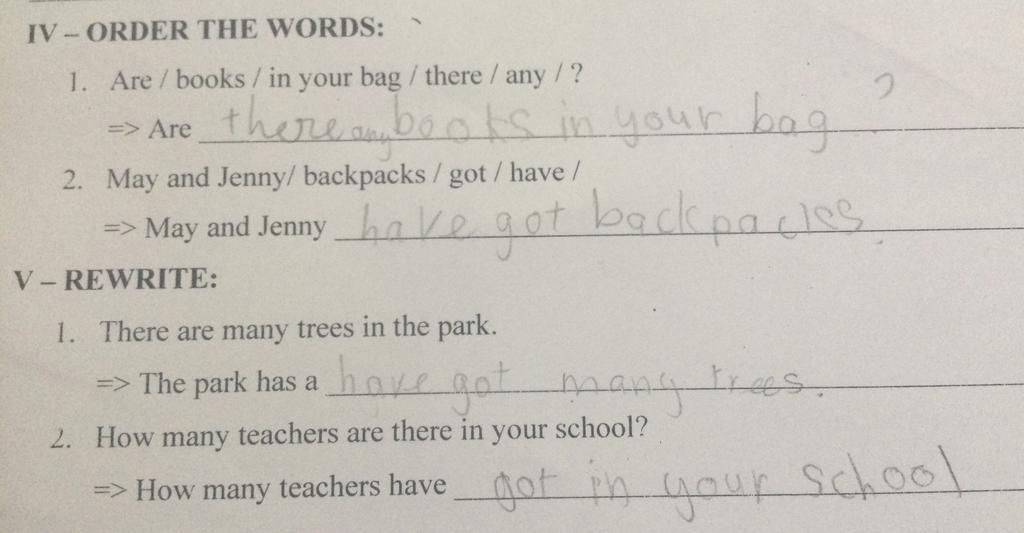 IV – ORDER THE WORDS:
1. Are / books / in your bag / there / any / ?
=> Are there any books in your bag ?
2. May and Jenny/ backpacks / got / have /
=> May and Jenny have got backpacks.
V – REWRITE:
1. There are many trees in the park.
=> The park has a have got many trees.
2. How many teachers are there in your school?
=> How many teachers have got in your school